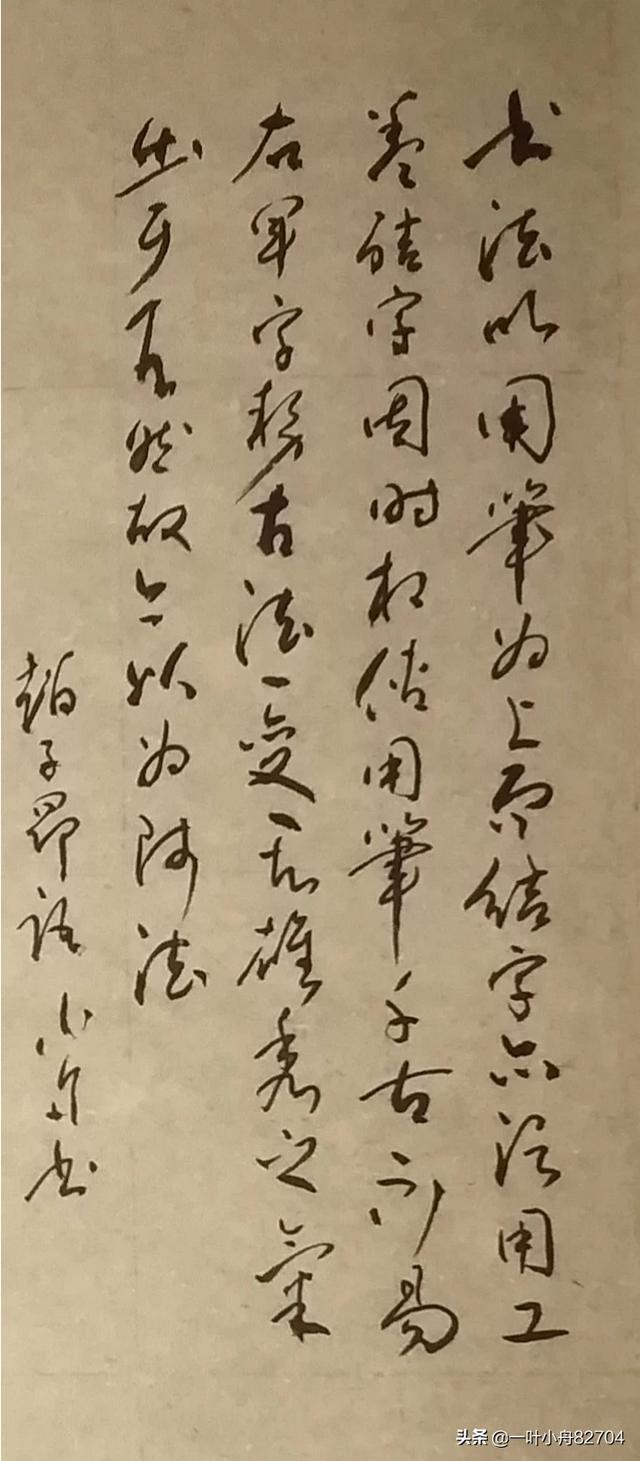 书法以用筆为上而结字亦须用工
盖结字因时相传用筆千古不易
右军字势古法一变其雄秀之氣
出于自然故今以为师法
趙子昂语 小舟书
头条 @一叶小舟82704